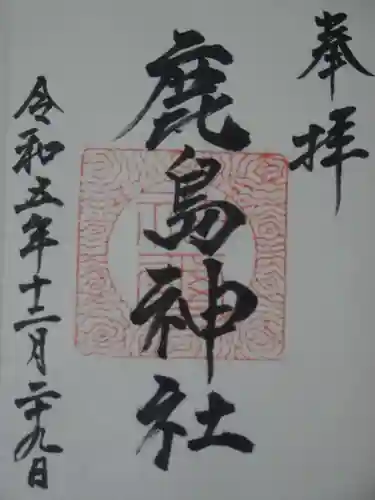 奉拝
鹿島神社
令和五年十二月二十九日